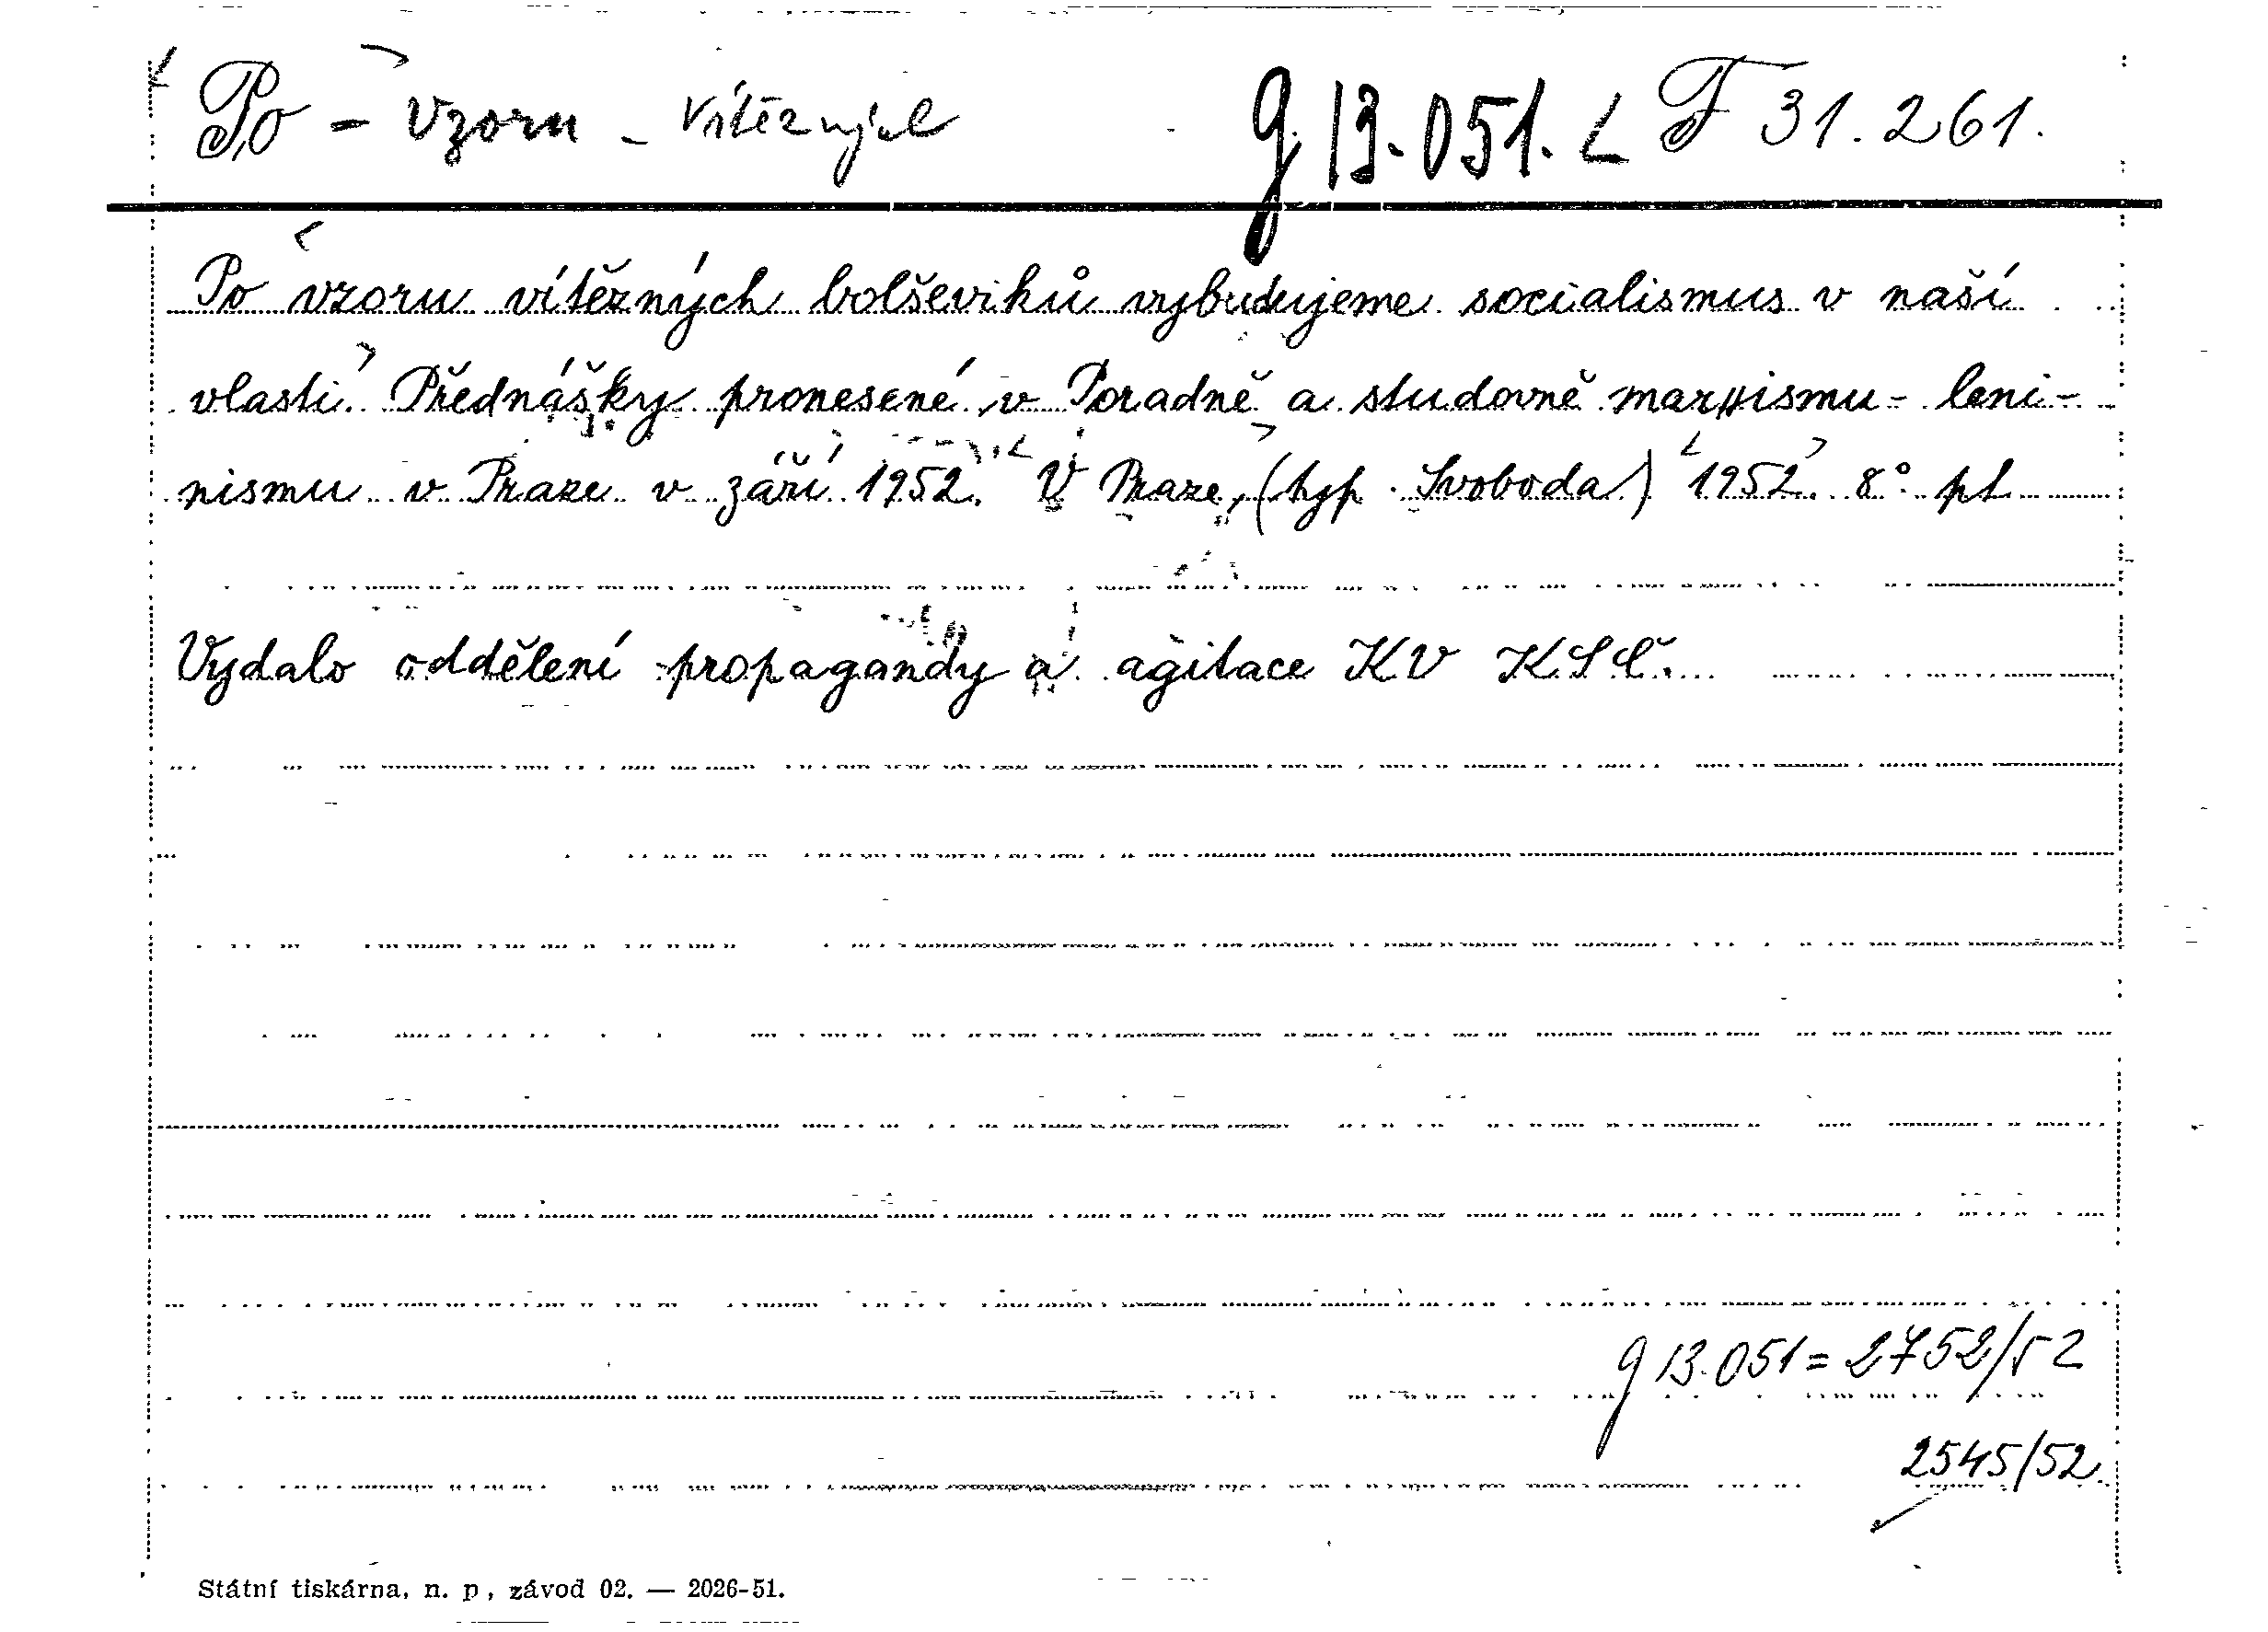 Po - vzoru - vítězných g 13.051. F 31.261.
Po vzoru vítězných bolševiků vybudujeme socialismus v naší
vlasti. Přednášky pronesené v Poradně a studovně marxismu-leni-
nismu v Praze v září 1952. V Praze, (typ. Svoboda) 1952. 8° pl
Vydalo oddělení propagandy a agitace KV KSČ.
g 13.051 = 2752/52
2545/52.
Státní tiskárna, n. p., závod 02. — 2026-51.